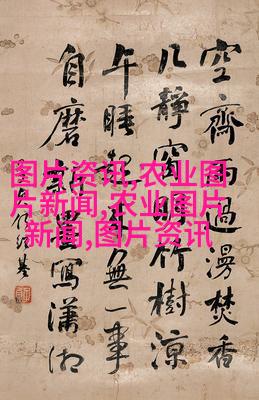 空齋雨過漫焚香
几靜窗明竹樹涼
午睡起來無一事
自磨新墨寫瀟湘
图片资讯,农业图
片新闻,农业图片
新闻,图片资讯